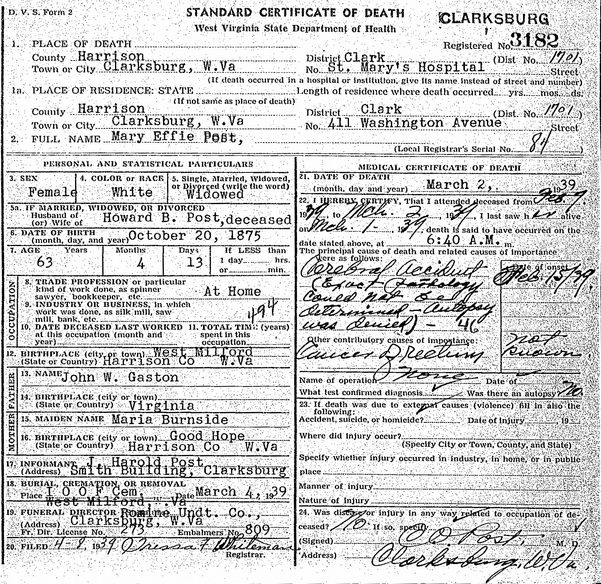 D. V. S. Form 2
STANDARD CERTIFICATE OF DEATH
CLARKSBURG
West Virginia State Department of Health
Registered No. 3182
1. PLACE OF DEATH
County Harrison
District Clark (Dist. No. 1701)
Town or City Clarksburg, W.Va
No. St. Mary's Hospital Street
(If death occurred in a hospital or institution, give its name instead of street and number)
1a. PLACE OF RESIDENCE: STATE
Length of residence where death occurred yrs. mos. ds.
(If not same as place of death)
County Harrison
District Clark (Dist. No. 1701)
Town or City Clarksburg, W.Va
No. 411 Washington Avenue Street
2. FULL NAME Mary Effie Post,
(Local Registrar's Serial No. 84)
PERSONAL AND STATISTICAL PARTICULARS
3. SEX 4. COLOR or RACE 5. Single, Married, Widowed, or Divorced (write the word)
Female White Widowed
5a. IF MARRIED, WIDOWED, OR DIVORCED
Husband of
(or) Wife of Howard B. Post, deceased
6. DATE OF BIRTH
(month, day, and year) October 20, 1875
7. AGE Years Months Days If LESS than
63 4 13 1 day hrs.
or min.
OCCUPATION
8. TRADE PROFESSION or particular
kind of work done, as spinner
sawyer, bookkeeper, etc. At Home
9. INDUSTRY OR BUSINESS, in which
work was done, as silk mill, saw
mill, bank, etc. 494
10. DATE DECEASED LAST WORKED 11. TOTAL TIME (years)
at this occupation (month and year) spent in this occupation
12. BIRTHPLACE (city or town) West Milford
(State or Country) Harrison Co W.Va
FATHER
13. NAME
John W. Gaston
14. BIRTHPLACE (city or town)
(State or Country) Virginia
MOTHER
15. MAIDEN NAME Maria Burnside
16. BIRTHPLACE (city or town) Good Hope
(State or Country) Harrison Co W.Va
17. INFORMANT J. Harold Post
(Address) Smith Building, Clarksburg
18. BURIAL, CREMATION, OR REMOVAL
Place I O O F Cem. Date March 4, 1939
West Milford, Va
19. FUNERAL DIRECTOR Romine Undt. Co.,
Clarksburg, W.Va
Fr. Dir. License No. 275 Embalmers No. 809
20. FILED 4-8, 1939 Whiteman
Registrar.
MEDICAL CERTIFICATE OF DEATH
21. DATE OF DEATH
(month, day, and year) March 2, 1939
22. I HEREBY CERTIFY, That I attended deceased from Feb. 9,
1939, to Mch. 2, 1939, I last saw her alive
on Mch. 1, 1939, death is said to have occurred on the
date stated above, at 6:40 A.M. m.
The principal cause of death and related causes of importance
were as follows: Date of onset
Cerebral Accident Feb. 15/39
(Exact pathology
could not be
determined - Autopsy
was denied) -
Other contributory causes of importance:
Cancer of rectum not known
Name of operation None Date of
What test confirmed diagnosis Was there an autopsy? No
23. If death was due to external causes (violence) fill in also the
following:
Accident, suicide, or homicide? Date of injury 19
Where did injury occur?
(Specify City or Town, County, and State)
Specify whether injury occurred in industry, in home, or in public
place
Manner of injury
Nature of injury
24. Was disease or injury in any way related to occupation of de-
ceased? No. If so, specify
(Signed) C. O. Post. M. D.
(Address) Clarksburg, W.Va.